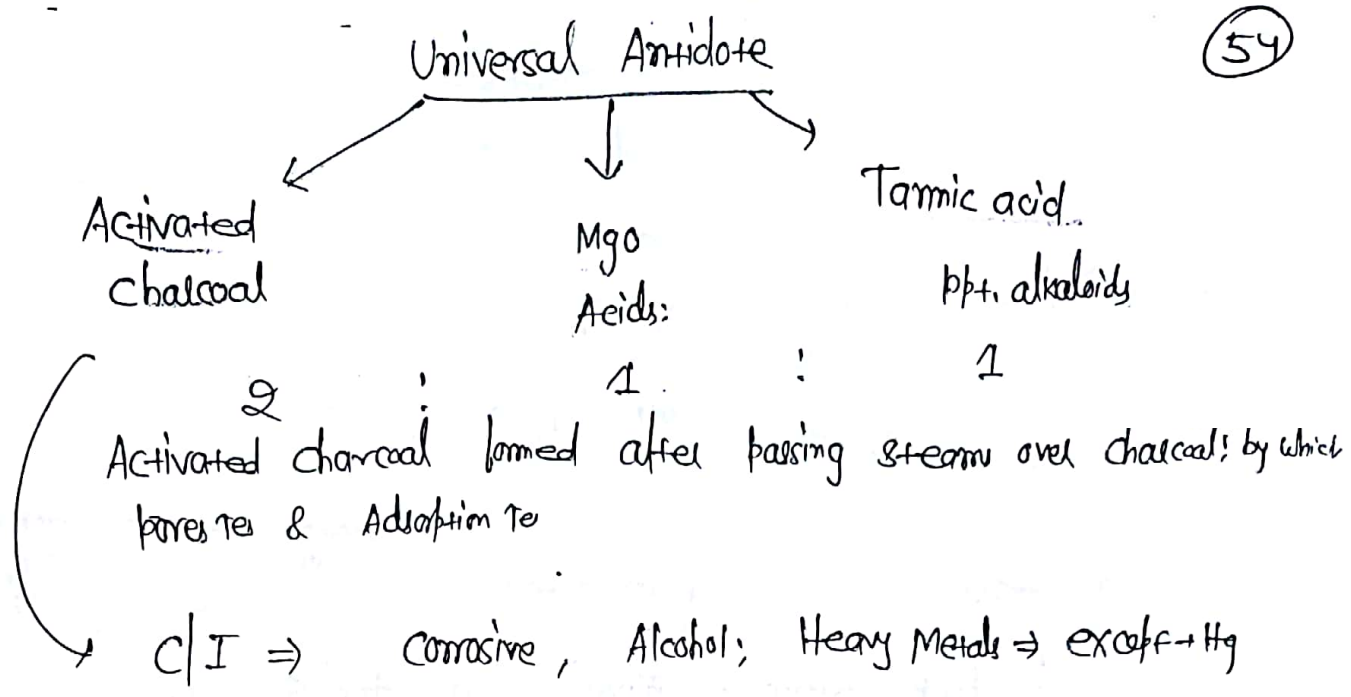 Universal Antidote
54
Activated
charcoal
MgO
Acids:
Tannic acid
ppt. alkaloids
2 : 1 : 1
Activated charcoal formed after passing steam over charcoal; by which
pores ↑es & Adsorption ↑e
C/I ⇒ Corrosive, Alcohol; Heavy Metals ⇒ except → Hg